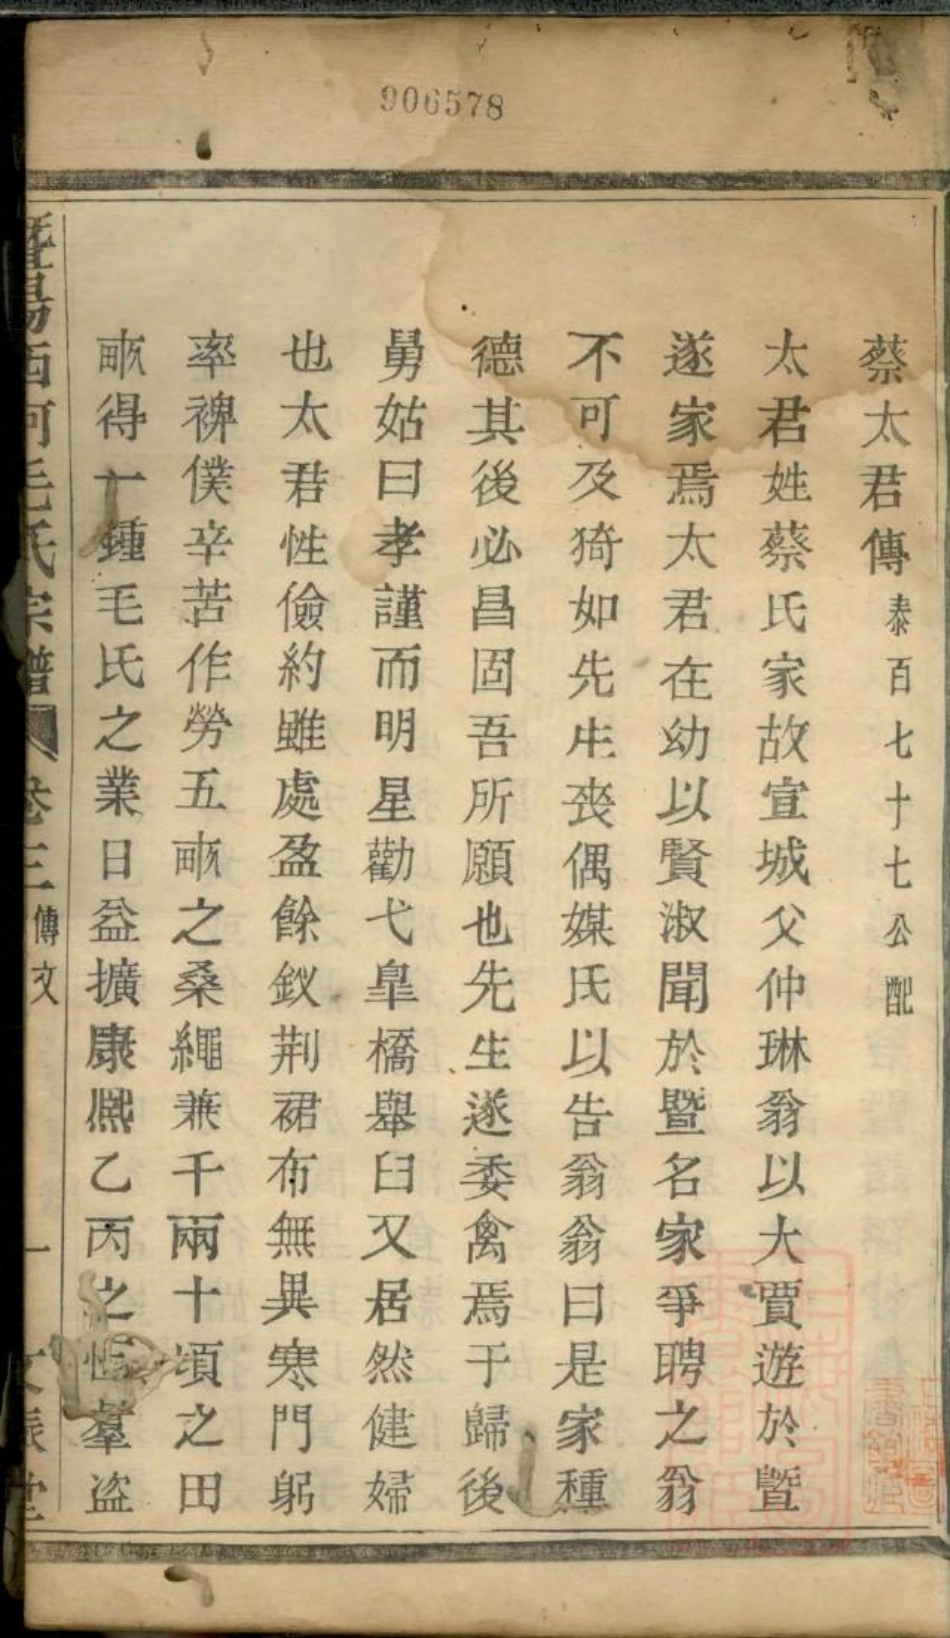 906578
蔡太君傳泰百七十七公配
太君姓蔡氏家故宣城父仲琳翁以大賈遊於暨
遂家焉太君在幼以賢淑聞於暨名家爭聘之翁
不可及猗如先生喪偶媒氏以告翁翁曰是家種
德其後必昌固吾所願也先生遂委禽焉于歸後
舅姑曰孝謹而明星勸弋皐橋舉臼又居然健婦
也太君性儉約雖處盈餘釵荆裙布無異寒門躬
率裨僕辛苦作勞五畝之桑繩兼千兩十頃之田
畝得一鍾毛氏之業日益擴康熙乙丙之羣盜
暨陽西河毛氏宗譜卷三傳文一文振堂